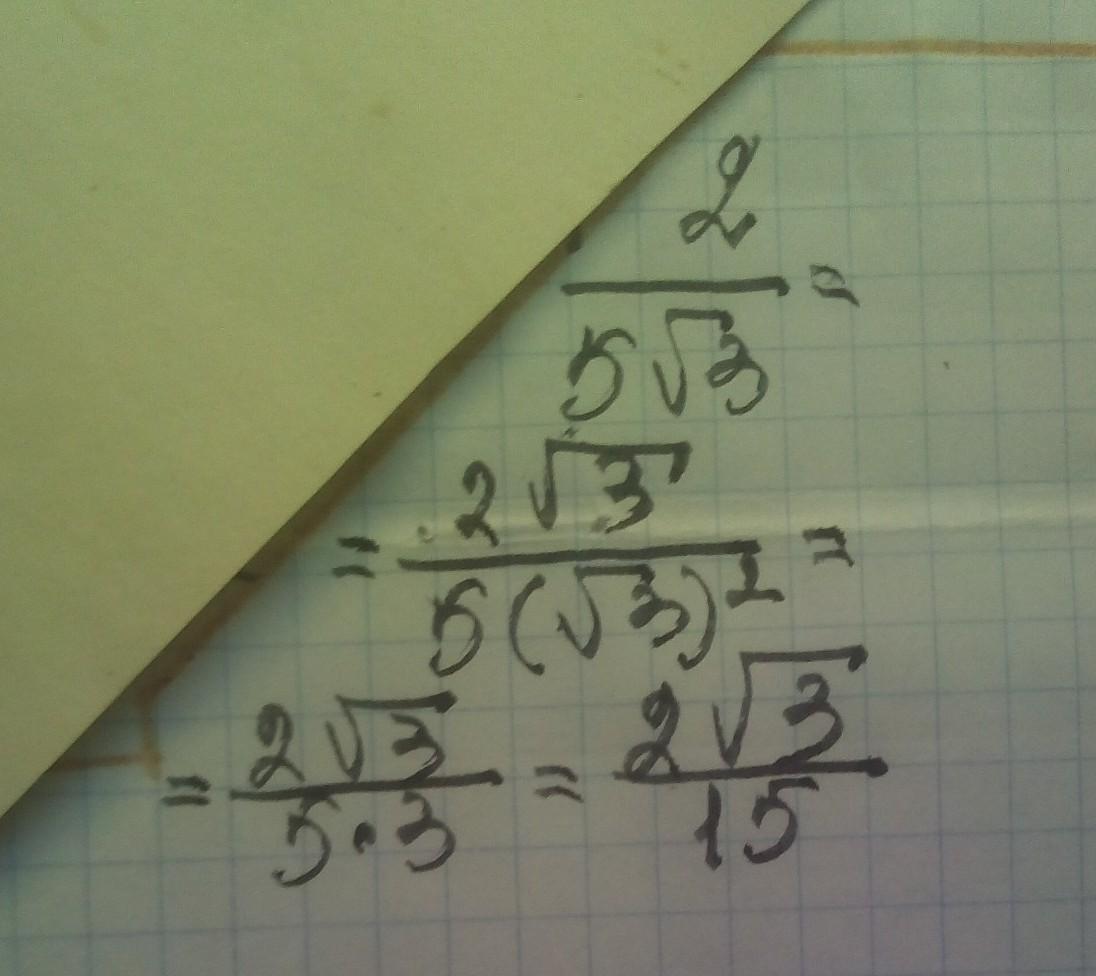 2/(5√3) =
= 2√3/(5(√3)²) =
= 2√3/(5·3) = 2√3/15